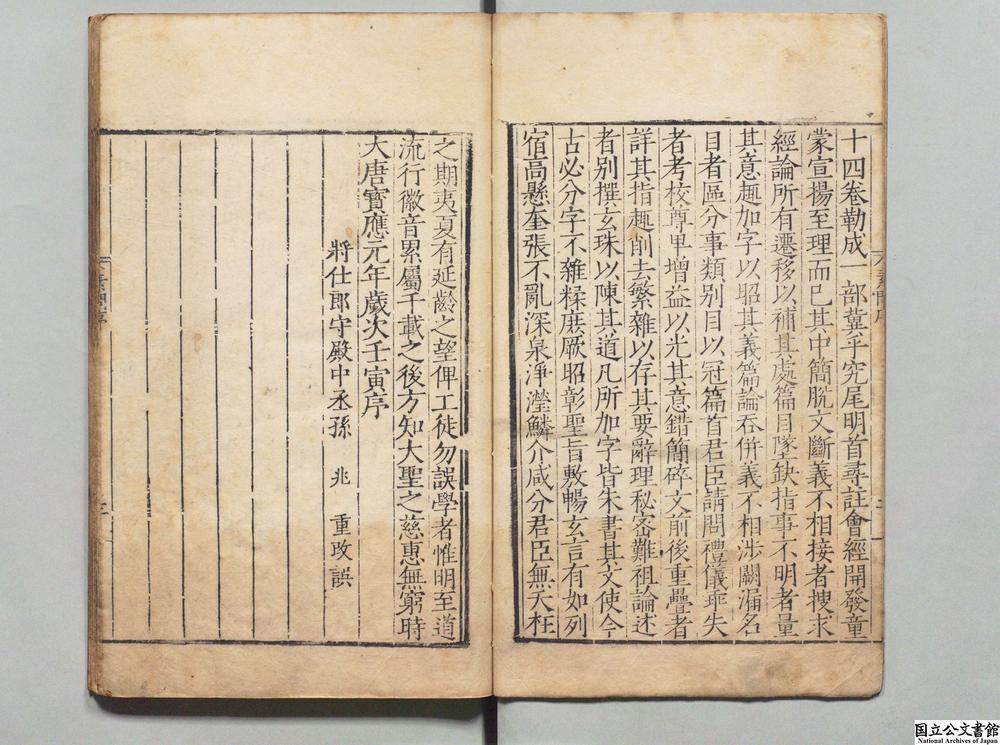 十四卷勒成一部冀乎究尾明首尋註會經開發童
蒙宣揚至理而已其中簡脫文斷義不相接者搜求
經論所有遷移以補其處篇目墜缺指事不明者量
其意趣加字以昭其義篇論吞併義不相涉闕漏名
目者區分事類別目以冠篇首君臣請問禮儀乖失
者考校尊卑增益以光其意錯簡碎文前後重疊者
詳其指趣削去繁雜以存其要辭理秘密難粗論述
者別撰玄珠以陳其道凡所加字皆朱書其文使今
古必分字不雜糅庶厥昭彰聖旨敷暢玄言有如列
宿高懸奎張不亂深泉淨瀅鱗介咸分君臣無夭枉
之期夷夏有延齡之望俾工徒勿誤學者惟明至道
流行徽音累屬千載之後方知大聖之慈惠無窮時
大唐寶應元年歲次壬寅序
將仕郎守殿中丞孫 兆 重改誤
素問序
三
国立公文書館
National Archives of Japan